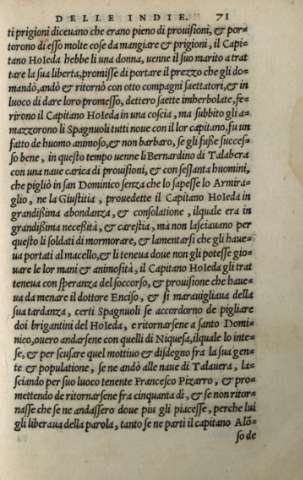 DELLE INDIE. 71
ti prigioni diceuano che erano pieno di prouisioni, & por=
torono di esso molte cose da mangiare & prigioni, il Capi=
tano Hoieda hebbe li una donna, uenne il suo marito a trat
tare la sua liberta, promisse di portare il prezzo che gli do=
mandò, andò & ritornò con otto compagni saettatori, & in
luoco di dare loro promesso, dettero saette imberbolate, fe=
rirono il Capitano Hoieda in una coscia, ma subbito gli a=
mazzorono li Spagnuoli tutti noue con il lor capitano, fu un
fatto de huomo animoso, & non barbaro, se gli fusse succes=
so bene, in questo tempo uenne li Bernardino di Talabera
con una naue carica di prouisioni, & con sessanta huomini,
che pigliò in san Dominico senza che lo sapesse lo Armira=
glio, ne la Giustitia, prouedette il Capitano Hoieda in
grandissima abondanza, & consolatione, ilquale era in
grandissima necessità, & carestia, ma non lasciauano per
questo li soldati di mormorare, & lamentarsi che gli haue=
ua portati al macello, & li teneua doue non gli potesse gio=
uare le lor mani & animosità, il Capitano Hoieda gli trat
teneua con speranza del soccorso, & prouisione che haue=
ua da menare il dottore Enciso, & si marauigliaua della
sua tardanza, certi Spagnuoli se accordorno de pigliare
doi brigantini del Hoieda, e ritornarsene a santo Domi=
nico, ouero andarsene con quelli di Niquesa, ilquale lo inte=
se, & per scusare quel mottiuo & disdegno fra la sua gen=
te & populatione, se ne andò alle naue di Talauera, la=
sciando per suo luoco tenente Francesco Pizarro, & pro=
mettendo de ritornarse fra cinquanta dì, & se non ritor=
nasse che se ne andassero doue piu gli piacesse, perche lui
gli liberaua della parola, tanto se ne parti il capitano Alõ=
so de